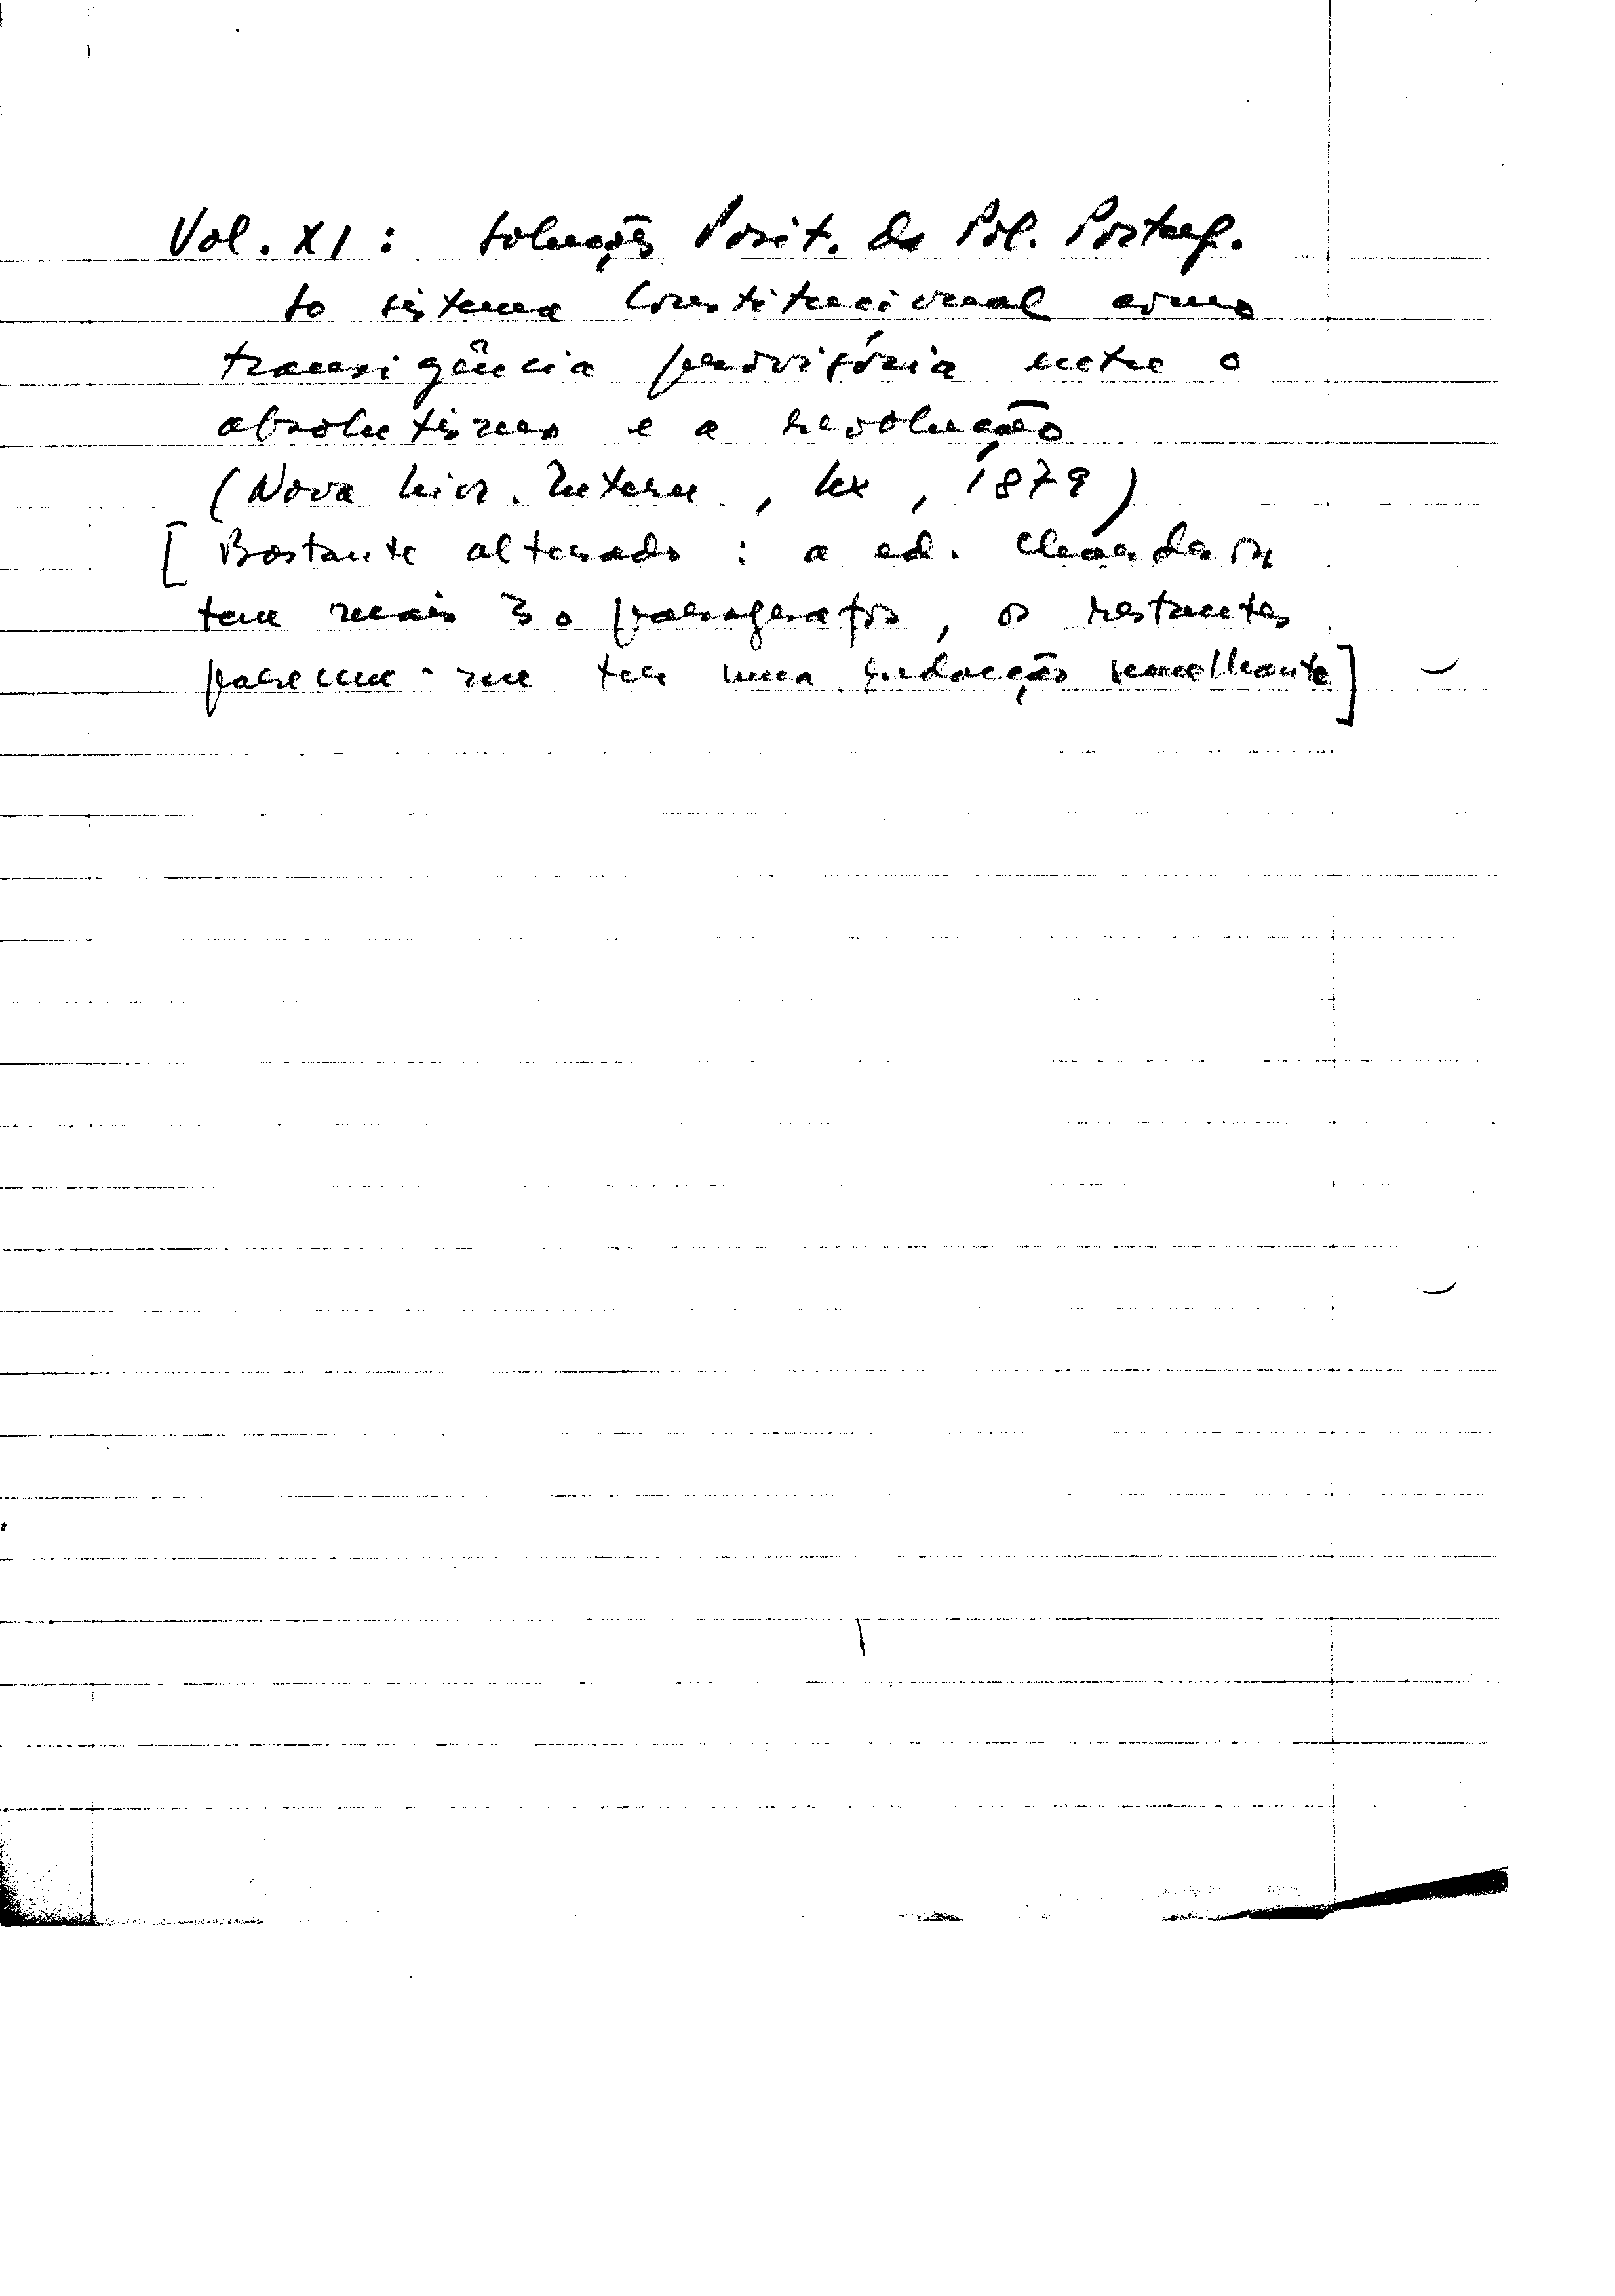 Vol. XI: Soluções Posit. da Pol. Portug.
Do sistema Constitucional como
transigência provisória entre o
absolutismo e a revolução
(Nova Livr. Intern., Lx, 1879)
[Bastante alterado: a ed. Chardron
tem mais 30 paragrafos, os restantes
parecem-me ter uma redacção semelhante]